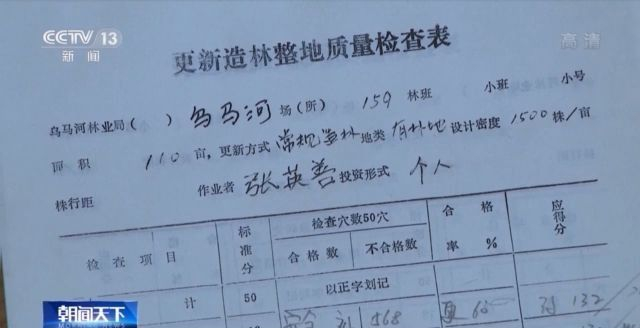 CCTV 13
新闻
高清
更新造林整地质量检查表
乌马河林业局( ) 乌马河 场(所) 159 林班 小班 小号
面积 110 亩,更新方式 常规造林 地类 有林地 设计密度 1500 株/亩
株行距 作业者 张英善 投资形式 个人
检查项目 标准分 检查穴数50穴 合格率% 应得分
合格数 不合格数
计 50 以正字划记
568
132
朝闻天下